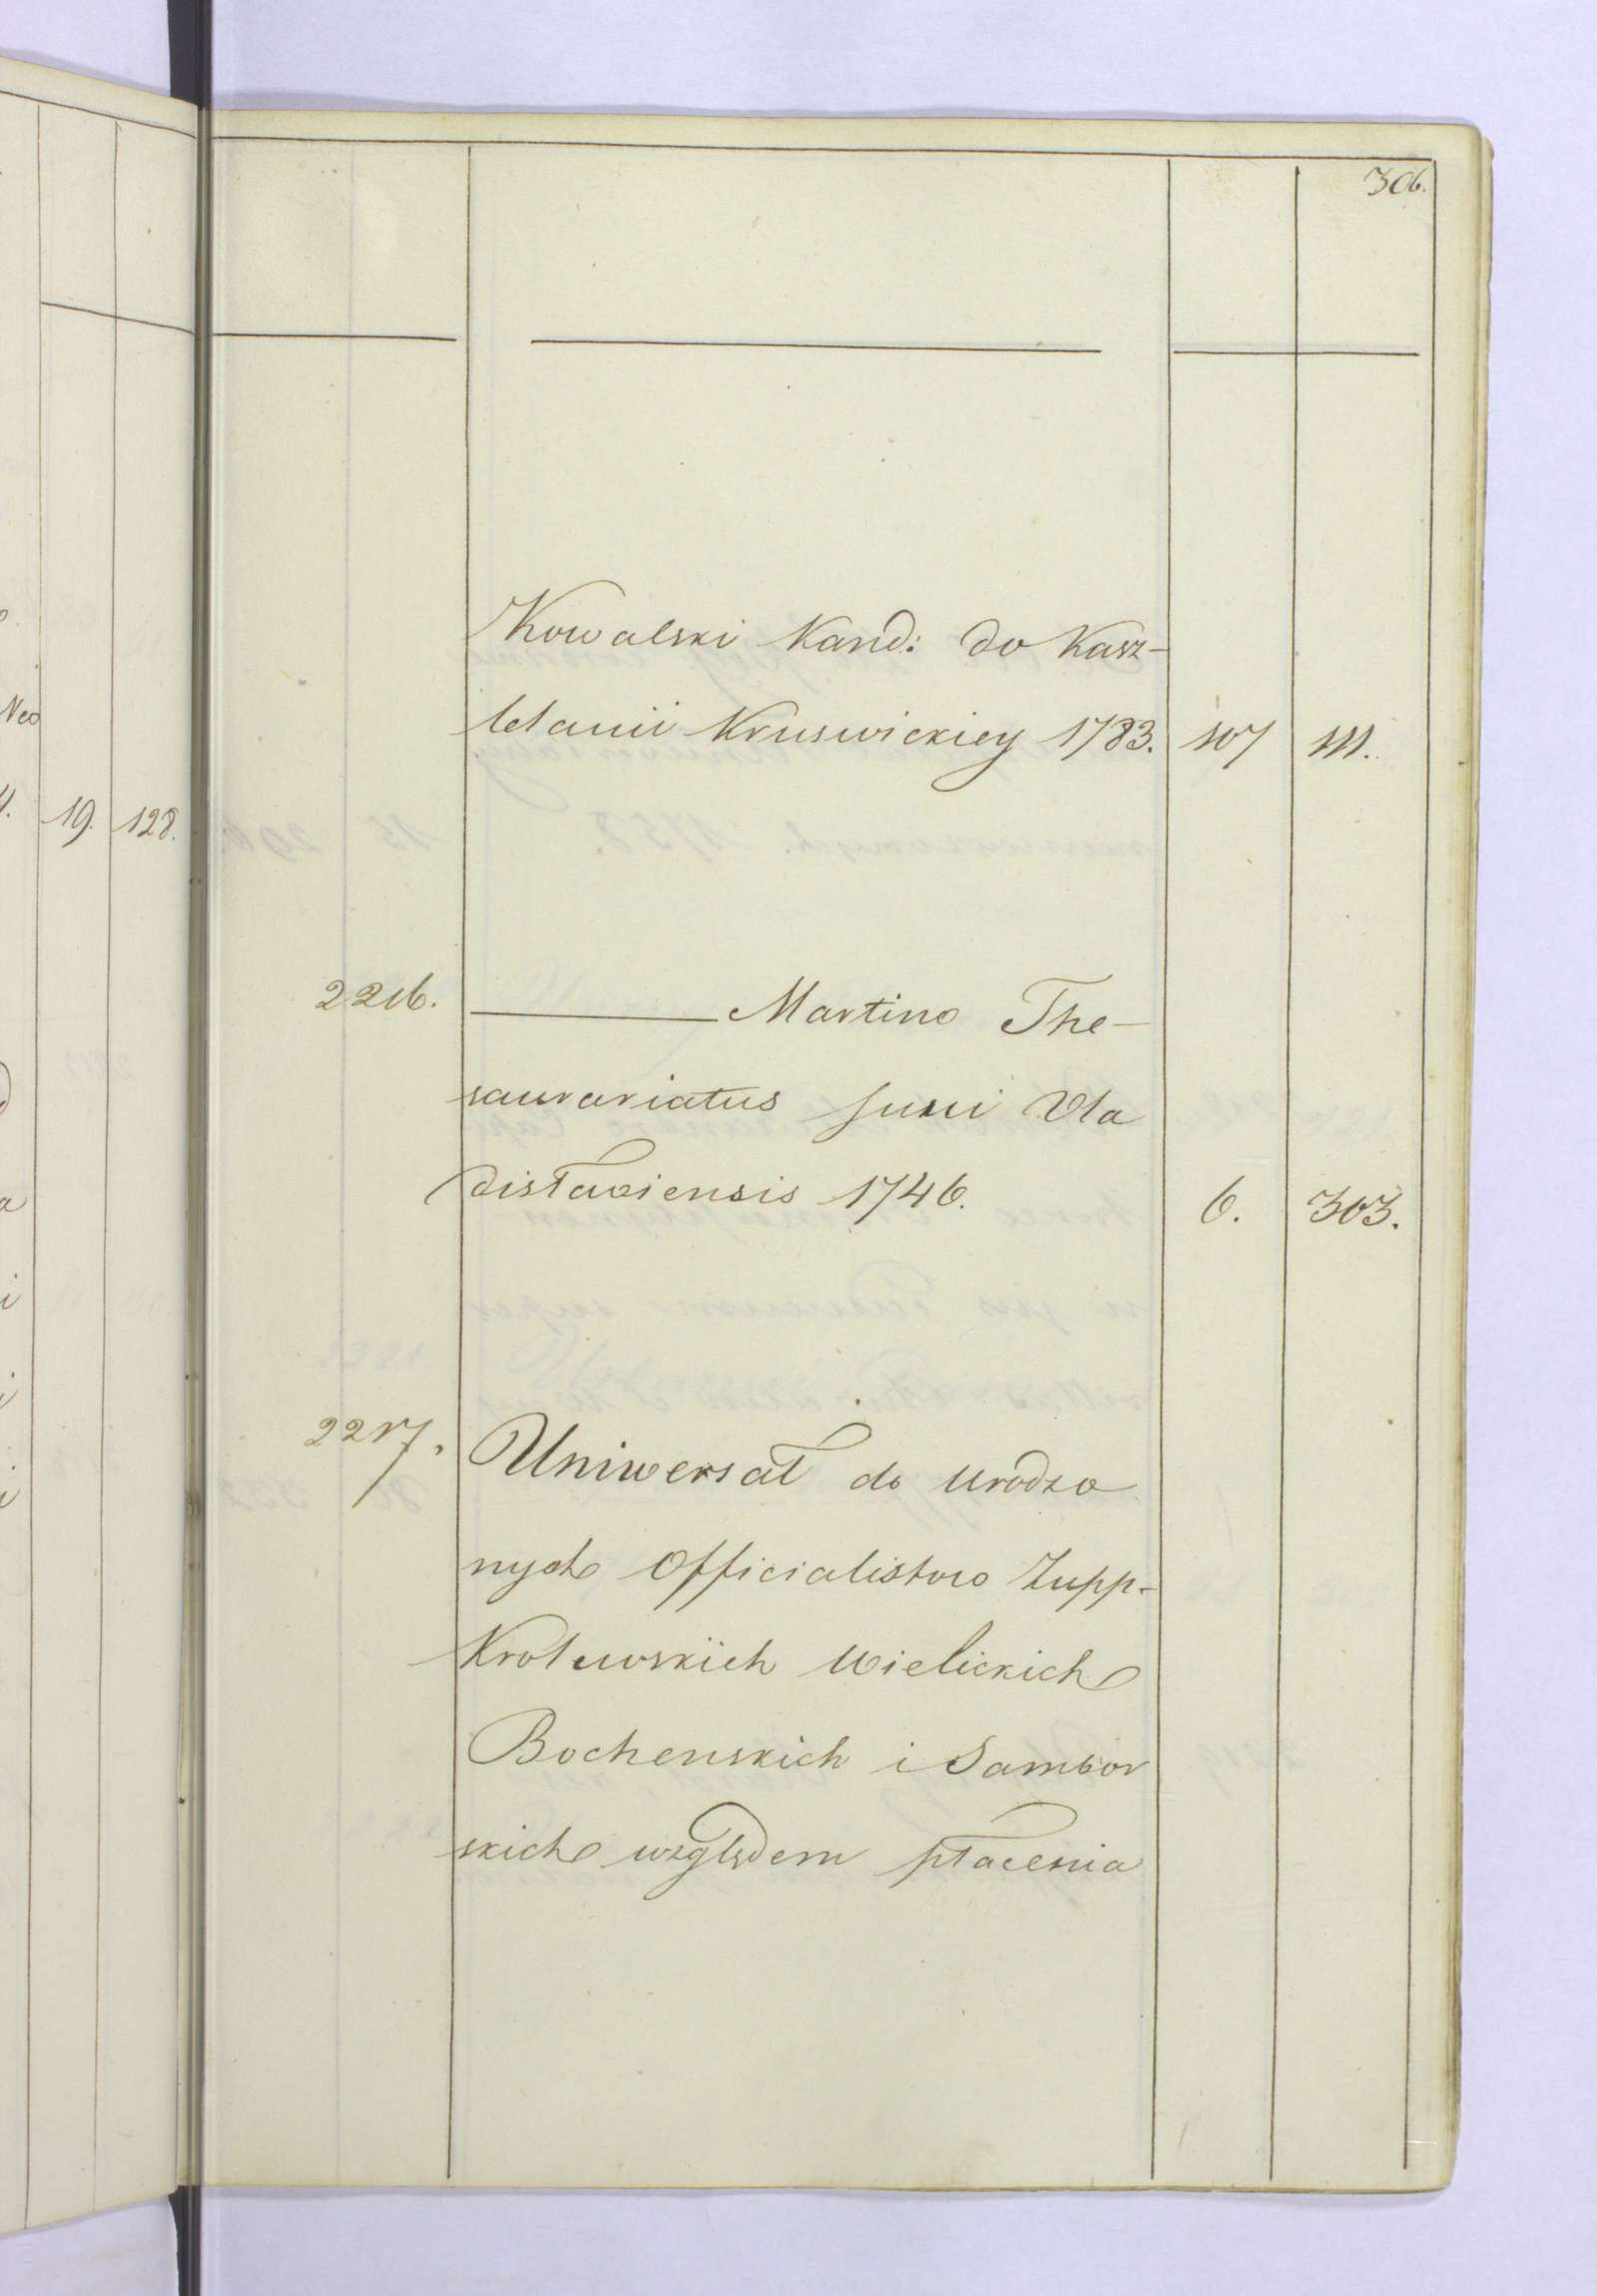 306.
Kowalski Kand: do Kasz-
telanii Kruswickiey 1783. 107 111.
19. 128.
2216. ——— Martino The-
saurariatus Juni Vla
disłaviensis 1746. 6. 303.
2217. Uniwersał do urodzo
nych Officialistow Zupp-
Krolewskich Wielickich
Bochenskich i Sambor
skich względem płacenia